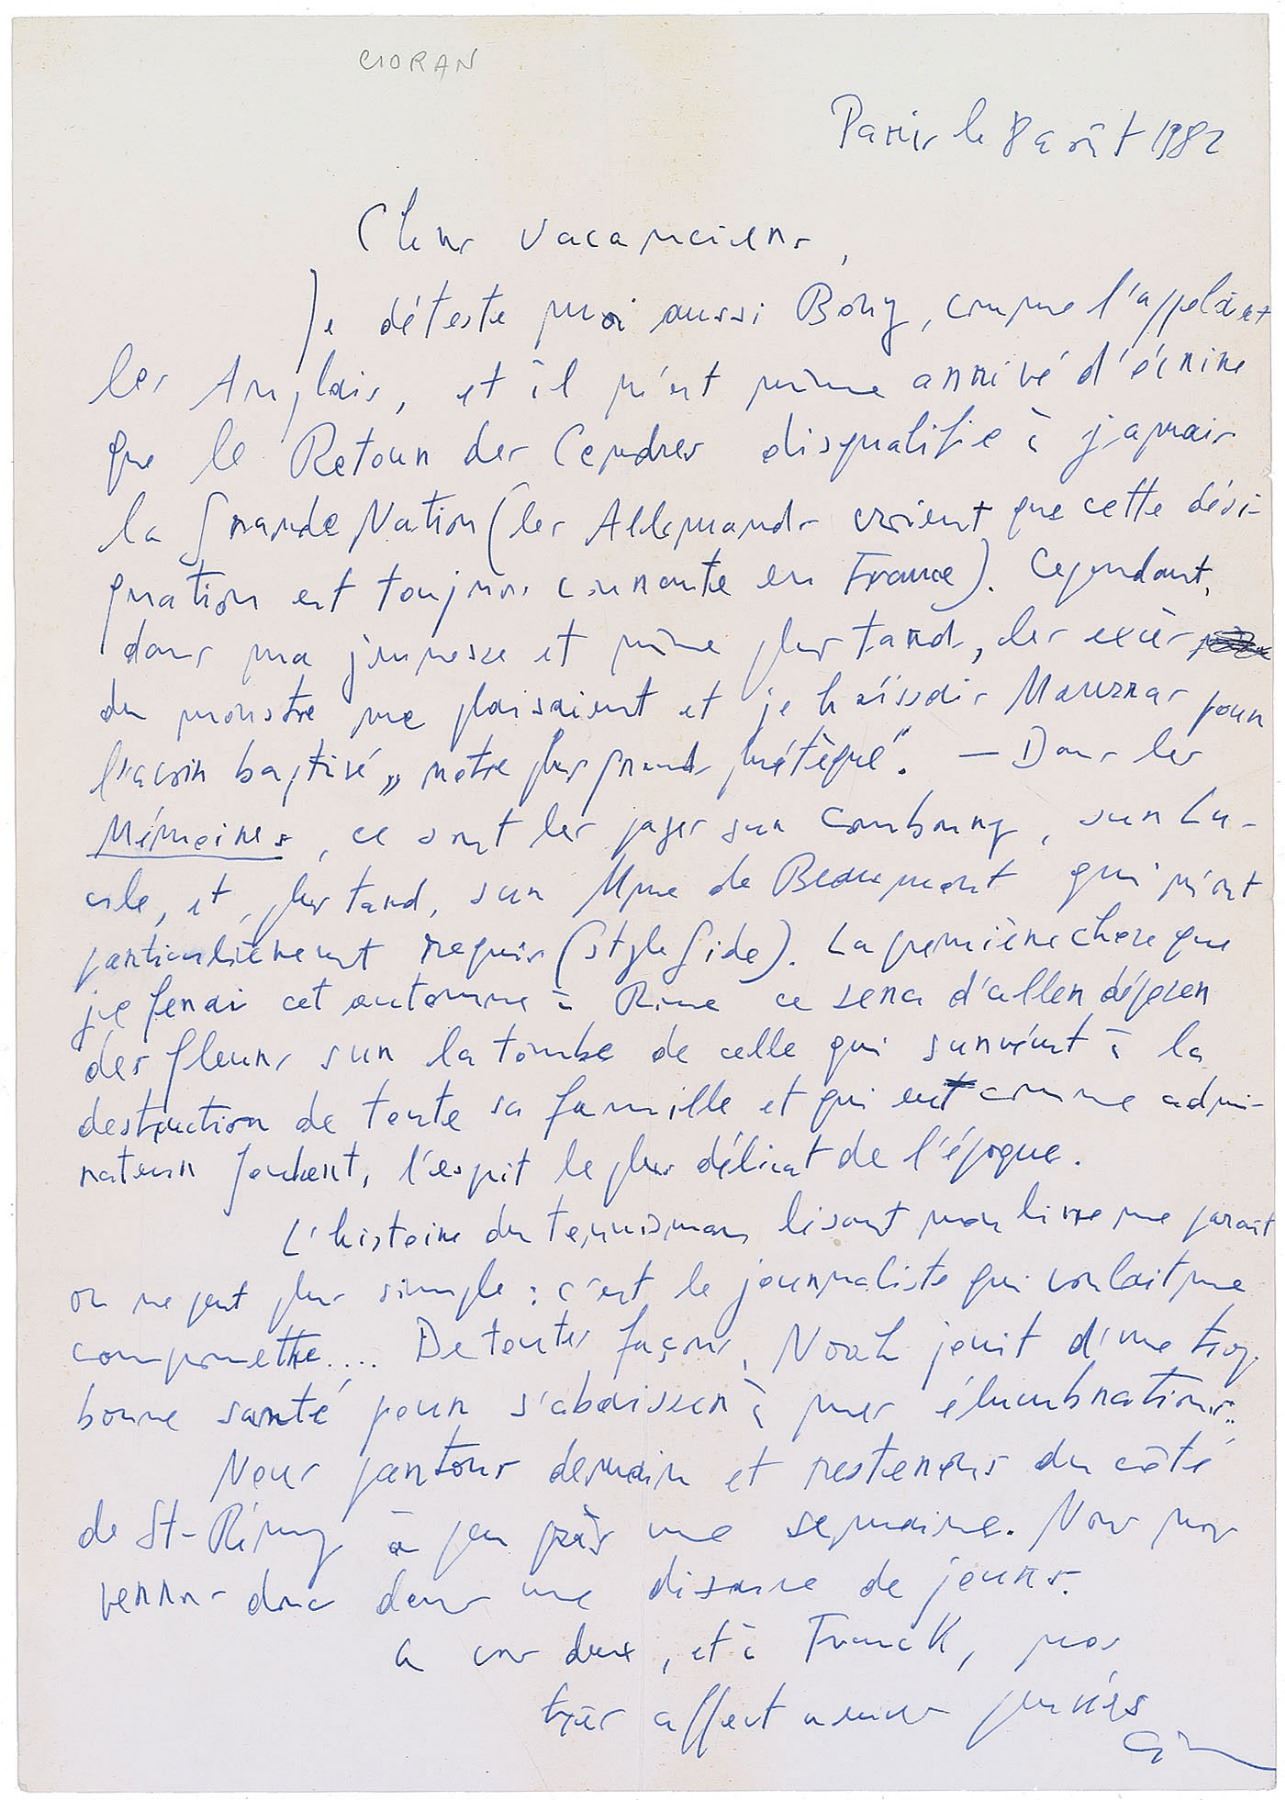 CIORAN
Paris le 8 août 1982
Chers vacanciens,
Je déteste moi aussi Bony, comme l'appelaient
les Anglais, et il m'est même arrivé d'écrire
que le Retour des Cendres disqualifie à jamais
la Grande Nation (les Allemands croient que cette dési-
gnation est toujours courante en France). Cependant,
dans ma jeunesse et même plus tard, les excès
du monstre me plaisaient et je haïssais Maurras pour
l'avoir baptisé „notre plus grand métèque". — Dans les
Mémoires, ce sont les pages sur Combourg, sur Lu-
cile, et, plus tard, sur Mme de Beaumont qui m'ont
particulièrement requis (style Gide). La première chose que
je ferai cet automne à Rome ce sera d'aller déposer
des fleurs sur la tombe de celle qui survécut à la
destruction de toute sa famille et qui eut comme admi-
rateur Joubert, l'esprit le plus délicat de l'époque.
L'histoire du tennisman lisant mon livre me paraît
on ne peut plus simple : c'est le journaliste qui voulait me
compromettre.... De toutes façons, Noah jouit d'une trop
bonne santé pour s'abaisser à mes élucubrations..
Nous partons demain et resterons du côté
de St-Rémy à peu près une semaine. Nous nous
verrons donc dans une dizaine de jours.
A vous deux, et à Franck, nos
très affectueuses pensées
Cioran